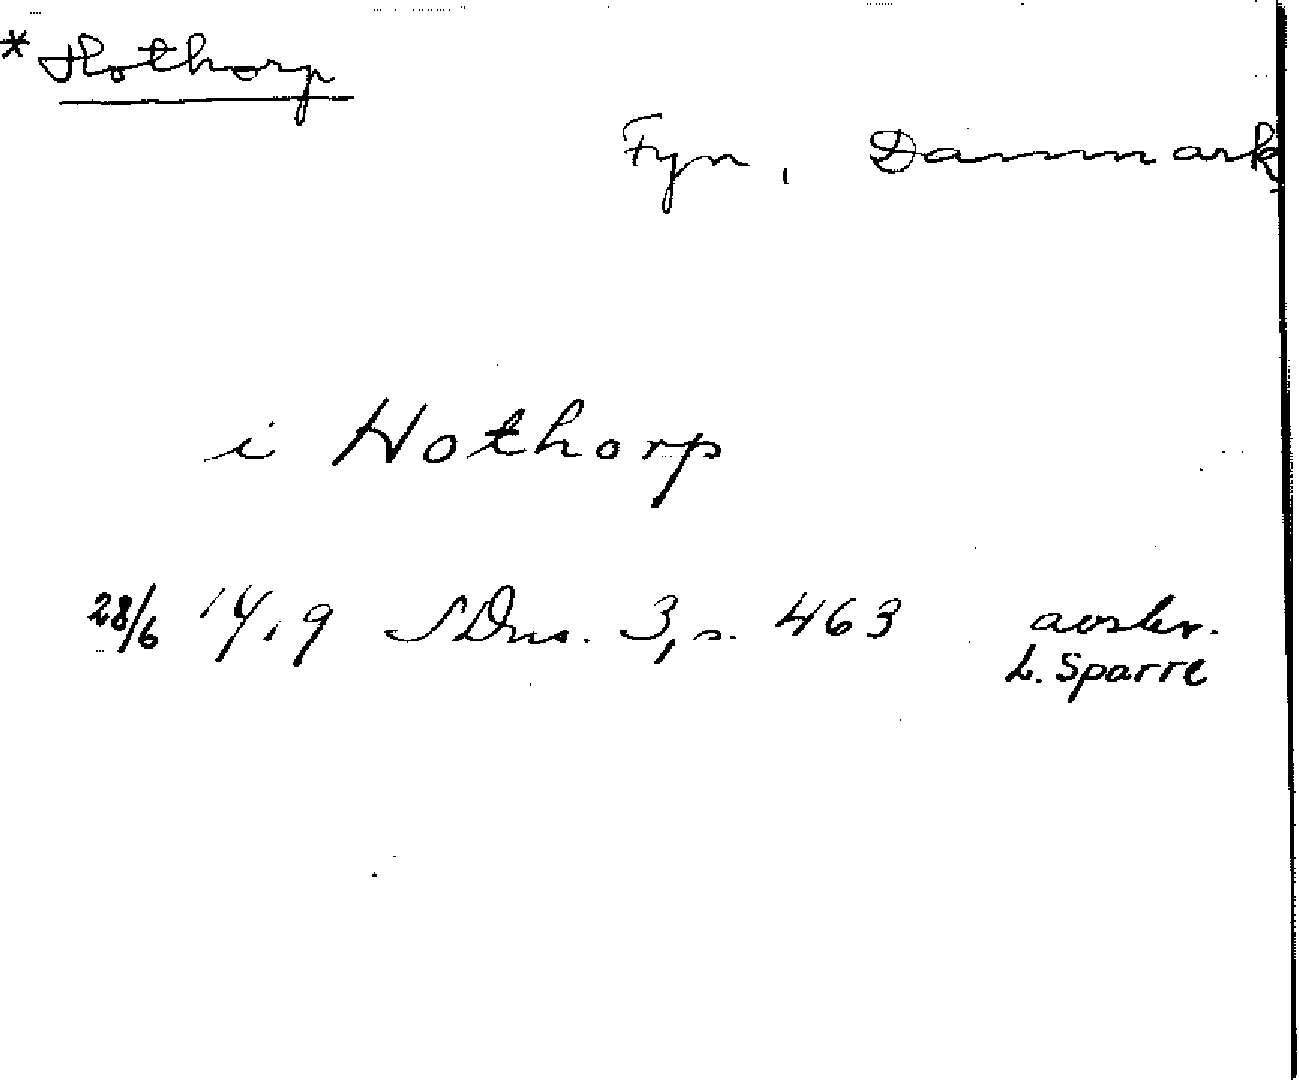 * Hothorp
Fyn, Danmark
i Hothorp
28/6 1419 SDns. 3, s. 463 avskr.
L. Sparre